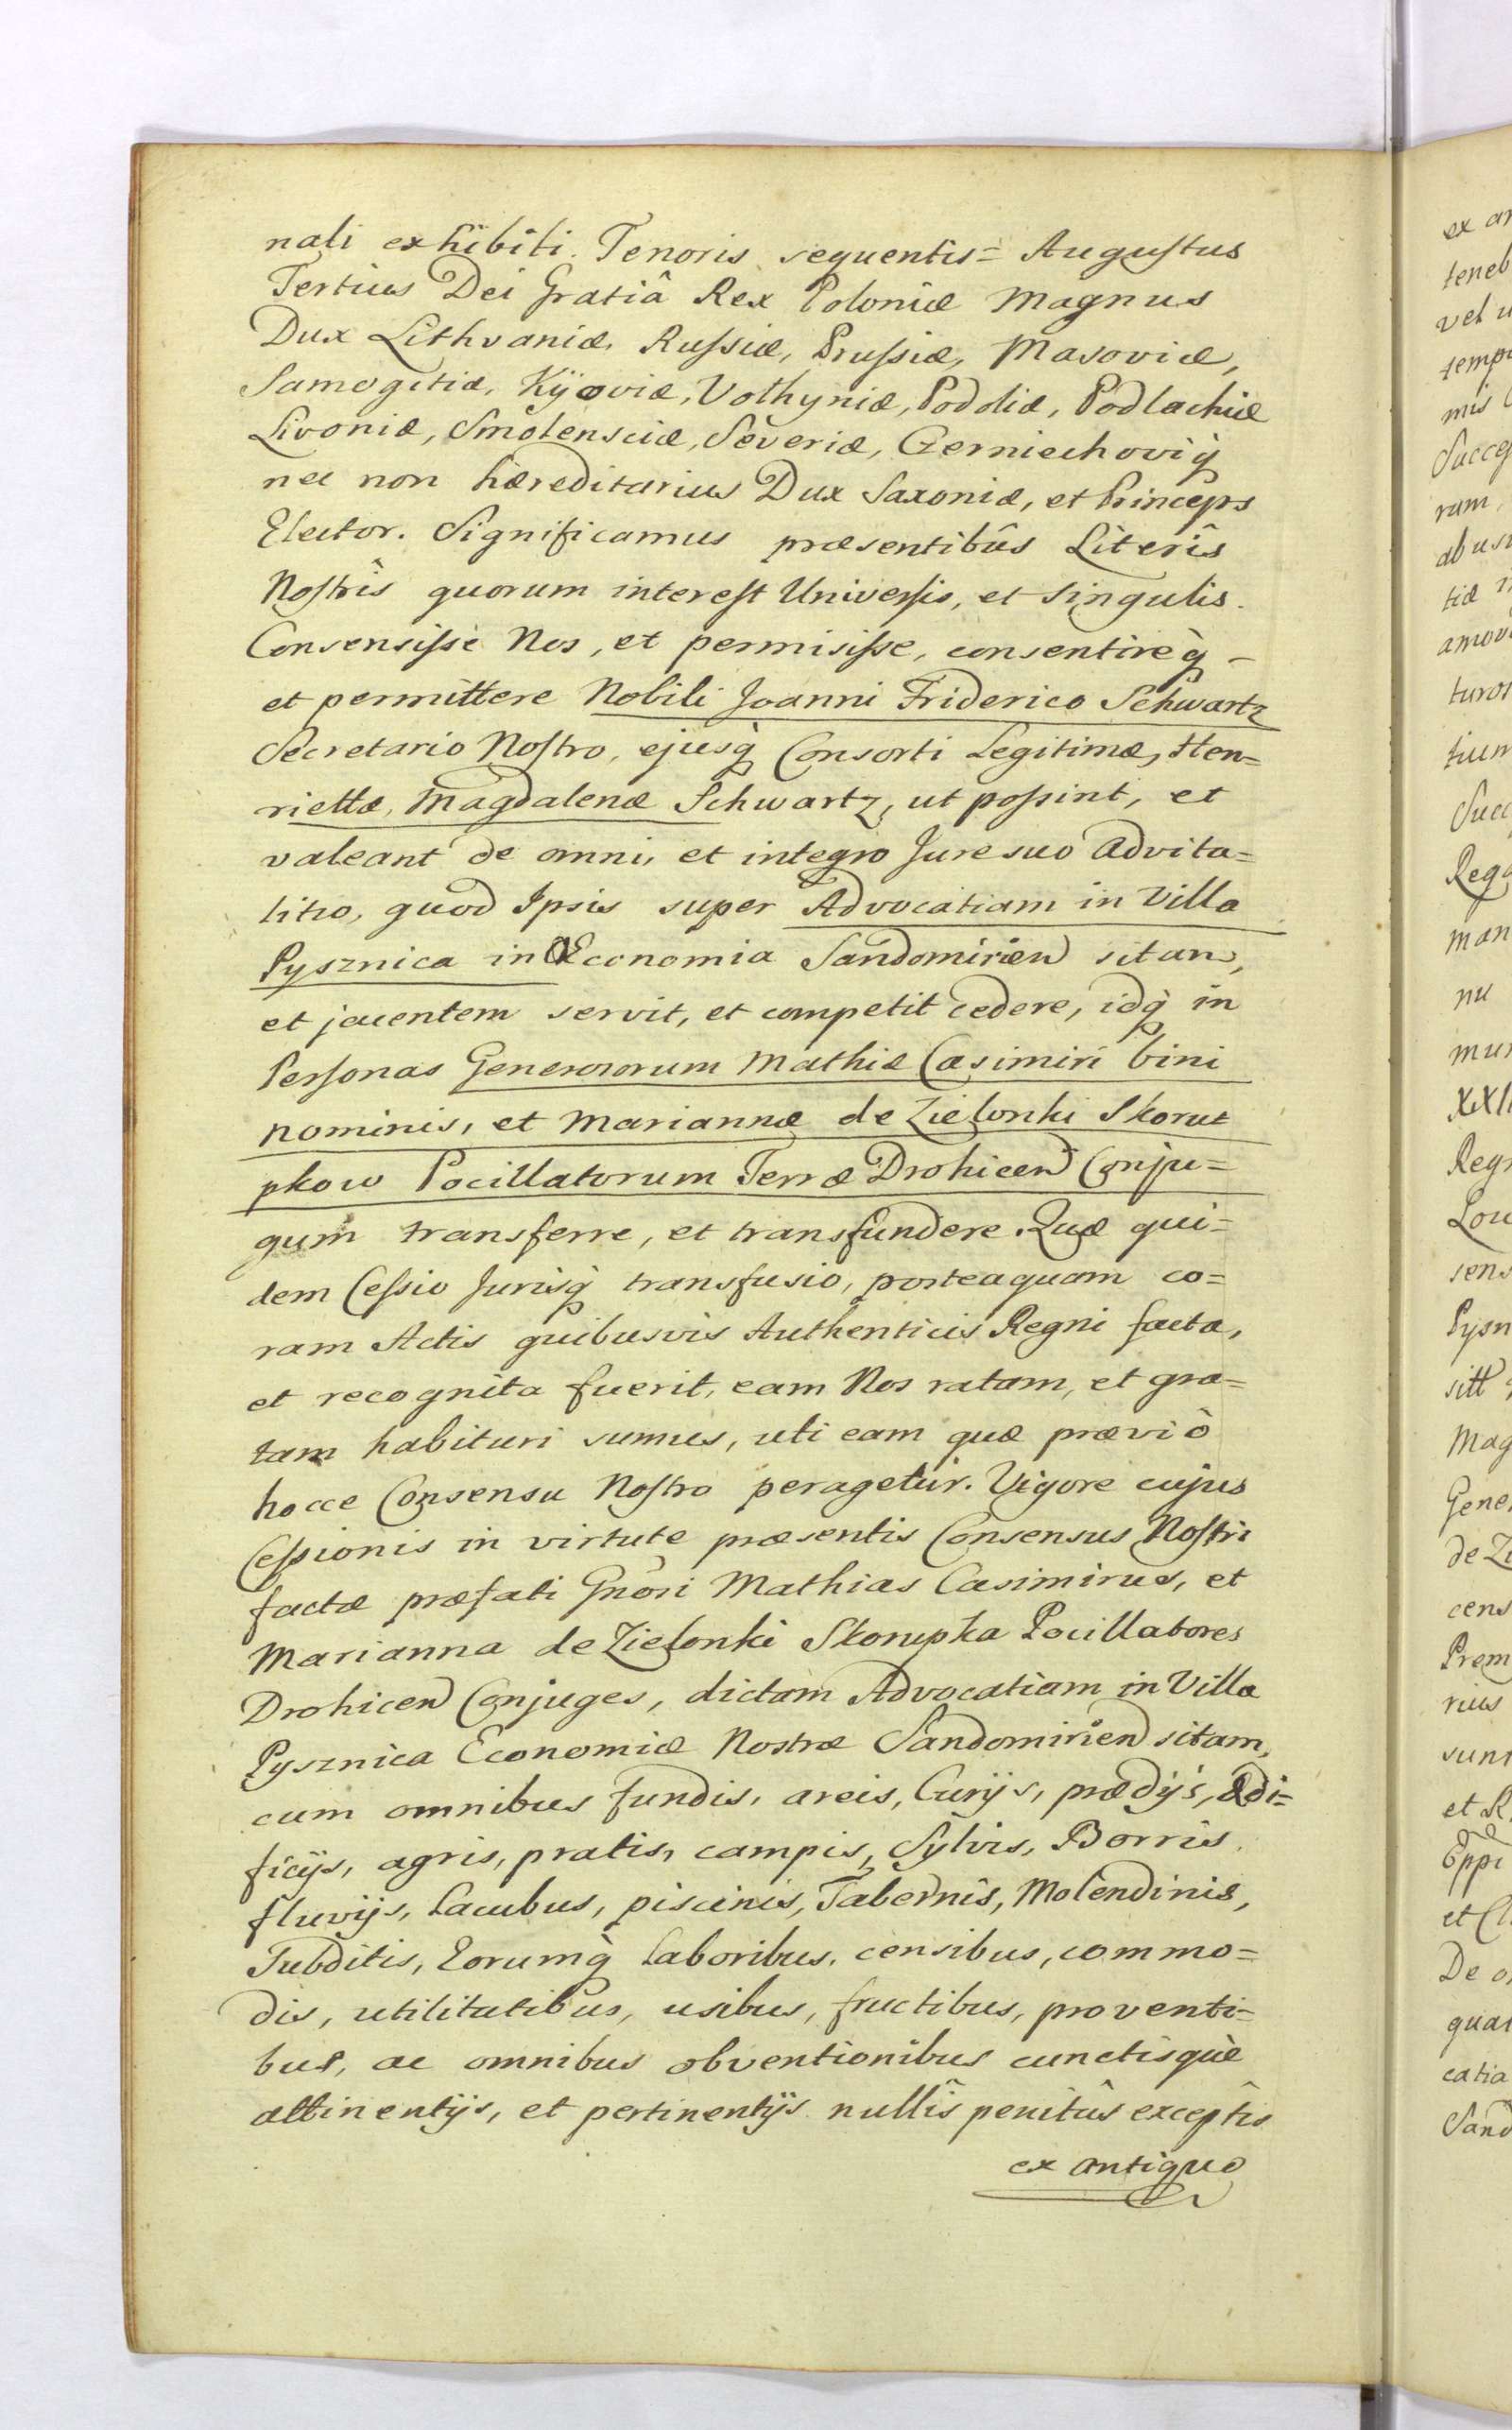 nali exhibiti. Tenoris sequentis= Augustus
Tertius Dei Gratiâ Rex Poloniæ Magnus
Dux Lithvaniæ, Russiæ, Prussiæ, Masoviæ,
Samogitiæ, Kÿoviæ, Volhyniæ, Podoliæ, Podlachiæ
Livoniæ, Smolensciæ, Severiæ, Czerniechoviq̀
nec non hæreditarius Dux Saxoniæ, et Princeps
Elector. Significamus præsentibûs Literîs
Nostrîs quorum interest Universis, et singulis.
Consensisse Nos, et permisisse, consentireq̀ –
et permittere Nobili Joanni Friderico Schwartz
Secretario Nostro, ejusq̀ Consorti Legitimæ, Hen=
riettæ, Magdalenæ Schwartz, ut possint, et
valeant de omni, et integro Jure suo Advita=
litio, quod Ipsis super Advocatiam in Villa
Pysznica in Œconomia Sandomirien sitam,
et jacentem servit, et competit cedere, idq̀ in
Personas Generosorum Mathiæ Casimiri bini
nominis, et Mariannæ de Zielonki Skorut
pkow Pocillatorum Terræ Drohicen Conju=
gum transferre, et transfundere. Quæ qui=
dem Cessio Jurisq̀ transfusio, posteaquam co=
ram Actis quibusvis Authenticis Regni facta,
et recognita fuerit, eam Nos ratam, et gra=
tam habituri sumus, uti eam quæ præviò
hocce Consensu Nostro peragetur. Vigore cujus
Cessionis in virtute præsentis Consensus Nostri
factæ præfati Gnõsi Mathias Casimirus, et
Marianna de Zielonki Skorupka Pocillatores
Drohicen Conjuges, dictam Advocatiam in Villa
Pysznica Economiæ Nostræ Sandomirien sitam,
cum omnibus fundis, areis, Curijs, prædijs, ædi=
ficijs, agris, pratis, campis, Sylvis, Borris.
fluvijs, Lacubus, piscinis, Tabernis, Molendinis,
Subditis, Eorumq̀ Laboribus, censibus, commo=
dis, utilitatibus, usibus, fructibus, proventi=
bus, ac omnibus obventionibus cunctisquè
attinentijs, et pertinentijs nullîs penitûs exceptîs
ex antiquo